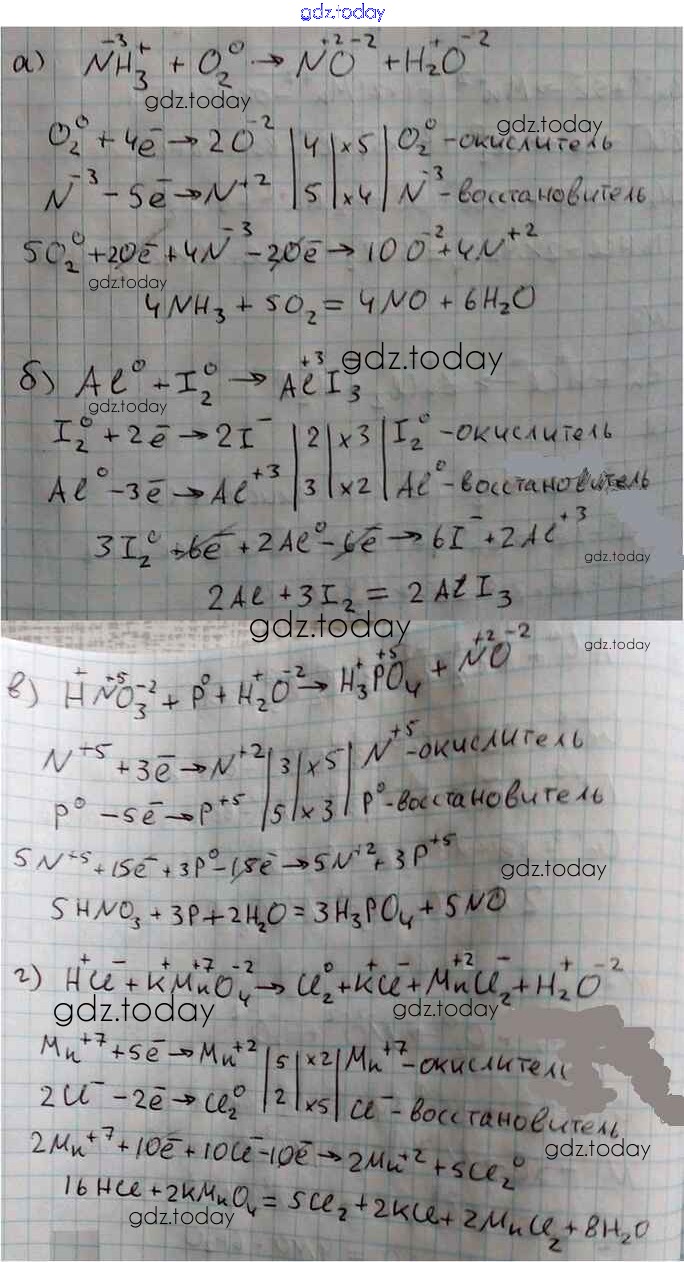 gdz.today
а) N⁻³H₃⁺ + O₂⁰ → N⁺²O⁻² + H₂⁺O⁻²
gdz.today
O₂⁰ + 4ē → 2O⁻² | 4 | ×5 | O₂⁰ - окислитель
gdz.today
N⁻³ - 5ē → N⁺² | 5 | ×4 | N⁻³ - восстановитель
5O₂⁰ + 20ē + 4N⁻³ - 20ē → 10O⁻² + 4N⁺²
gdz.today
4NH₃ + 5O₂ = 4NO + 6H₂O
gdz.today
б) Al⁰ + I₂⁰ → Al⁺³I₃
gdz.today
I₂⁰ + 2ē → 2I⁻ | 2 | ×3 | I₂⁰ - окислитель
Al⁰ - 3ē → Al⁺³ | 3 | ×2 | Al⁰ - восстановитель
3I₂⁰ + 6ē + 2Al⁰ - 6ē → 6I⁻ + 2Al⁺³
gdz.today
2Al + 3I₂ = 2AlI₃
gdz.today
gdz.today
в) H⁺N⁺⁵O₃⁻² + P⁰ + H₂⁺O⁻² → H₃⁺P⁺⁵O₄ + N⁺²O⁻²
N⁺⁵ + 3ē → N⁺² | 3 | ×5 | N⁺⁵ - окислитель
P⁰ - 5ē → P⁺⁵ | 5 | ×3 | P⁰ - восстановитель
5N⁺⁵ + 15ē + 3P⁰ - 15ē → 5N⁺² + 3P⁺⁵
gdz.today
5HNO₃ + 3P + 2H₂O = 3H₃PO₄ + 5NO
г) H⁺Cl⁻ + K⁺Mn⁺⁷O₄⁻² → Cl₂⁰ + K⁺Cl⁻ + Mn⁺²Cl₂⁻ + H₂⁺O⁻²
gdz.today
gdz.today
Mn⁺⁷ + 5ē → Mn⁺² | 5 | ×2 | Mn⁺⁷ - окислитель
2Cl⁻ - 2ē → Cl₂⁰ | 2 | ×5 | Cl⁻ - восстановитель
2Mn⁺⁷ + 10ē + 10Cl⁻ - 10ē → 2Mn⁺² + 5Cl₂⁰
gdz.today
16HCl + 2KMnO₄ = 5Cl₂ + 2KCl + 2MnCl₂ + 8H₂O
gdz.today